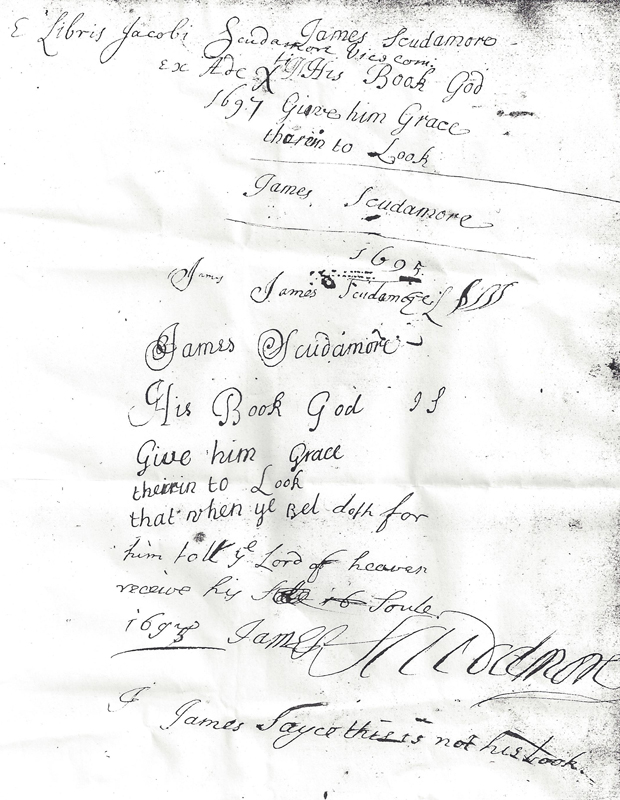 E Libris Jacobi Scudamore Vicecomi
James Scudamore
ti
Ex Ade X His Book God
1697 Give him Grace
therin to Look
James Scudamore
1695
James
James Scudamore
James Scudamore
His Book God IS
Give him Grace
therin to Look
that when ye Bel doth for
him toll ye Lord of heaven
receive his Soule
1693 James Scudamore
I James Sayce this is not his book.